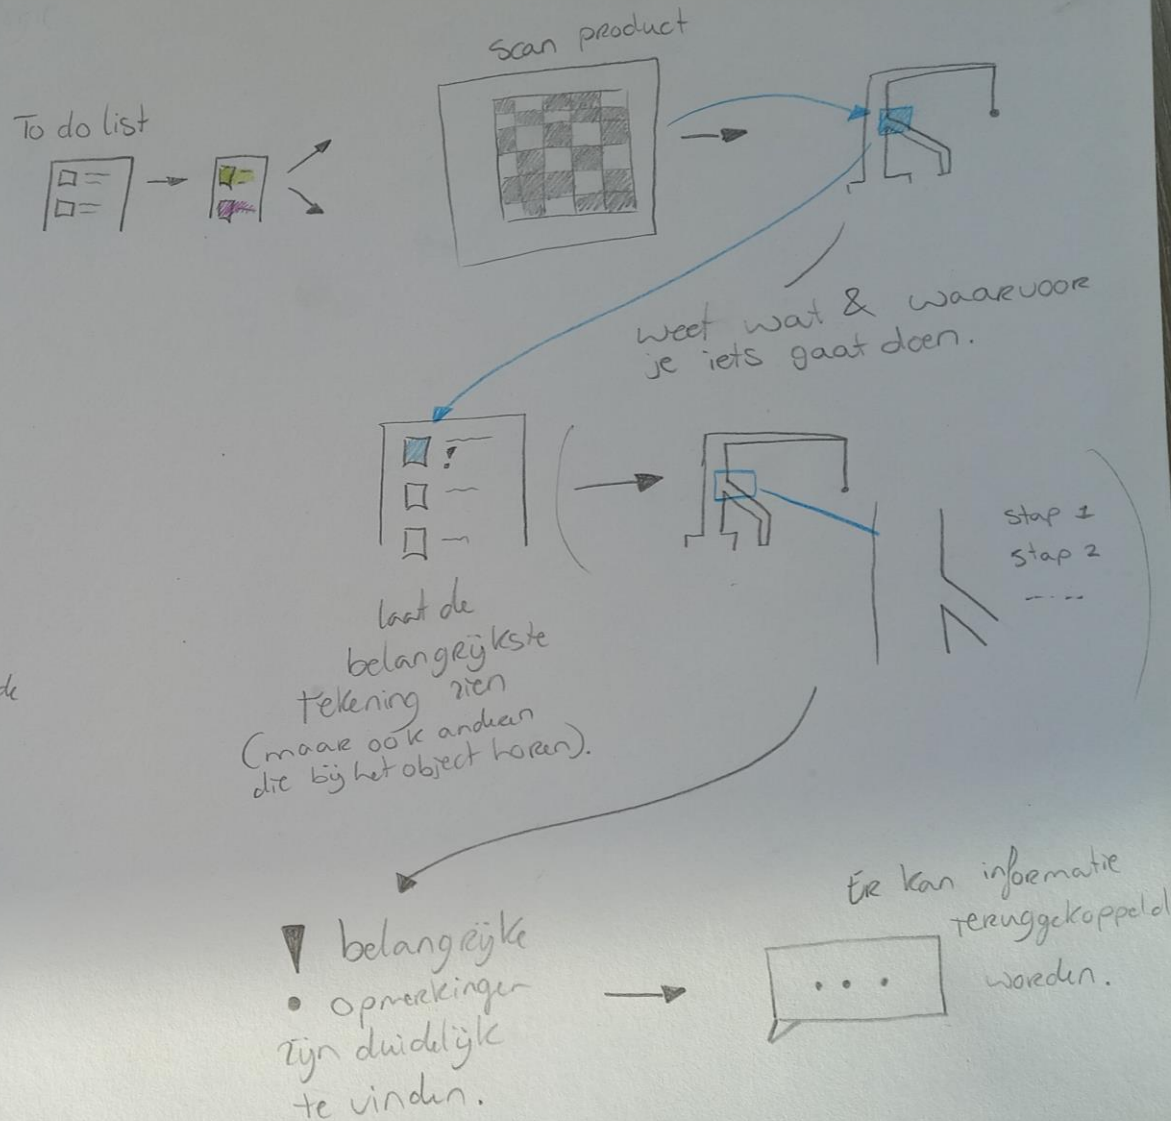 To do list
Scan product
weet wat & waarvoor
je iets gaat doen.
laat de
belangrijkste
tekening zien
(maar ook anderen
die bij het object horen).
stap 1
stap 2
! belangrijke
opmerkingen
zijn duidelijk
te vinden.
Er kan informatie
teruggekoppeld
worden.